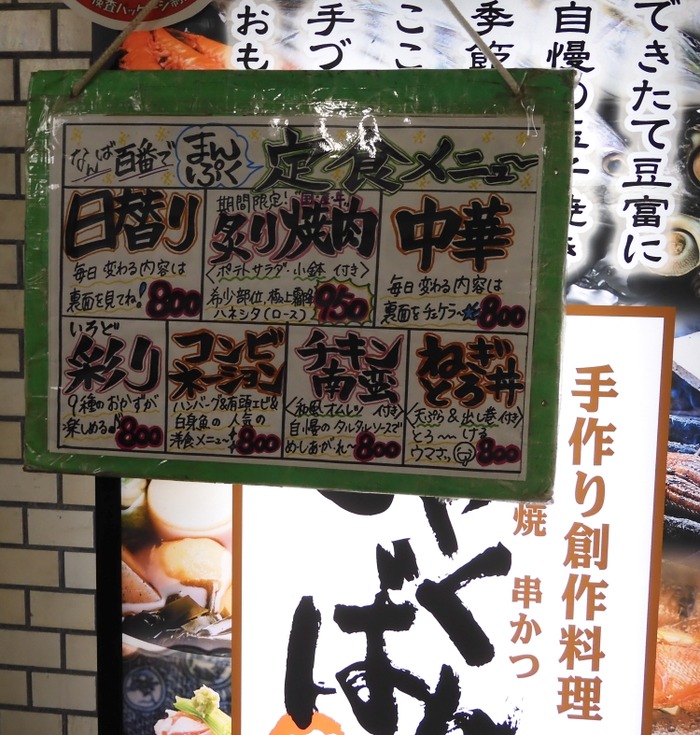 検査パッケージ
できたて豆富に
自慢の玉子焼き
季節
ここ
手づ
おも
なんば百番で まんぷく 定食メニュー
日替り
毎日 変わる内容は
裏面を見てね! 800
期間限定! "国産牛"
炙り焼肉
〈ポテトサラダ・小鉢 付き〉
希少部位、極上霜降
ハネシタ(ロース) 950
中華
毎日 変わる内容は
裏面をチェケラ~☆ 800
いろど
彩り
9種のおかずが
楽しめる♪ 800
コンビ
ネーション
ハンバーグ&有頭エビ&
白身魚の 人気の
洋食メニュー 800
チキン
南蛮
〈和風オムレツ 付き〉
自慢のタルタルソースで
めしあが~れ~ 800
ねぎ
とろ丼
〈天ぷら&出し巻付き〉
とろ~~ける
ウマさっ 800
手作り創作料理
焼 串かつ
くば